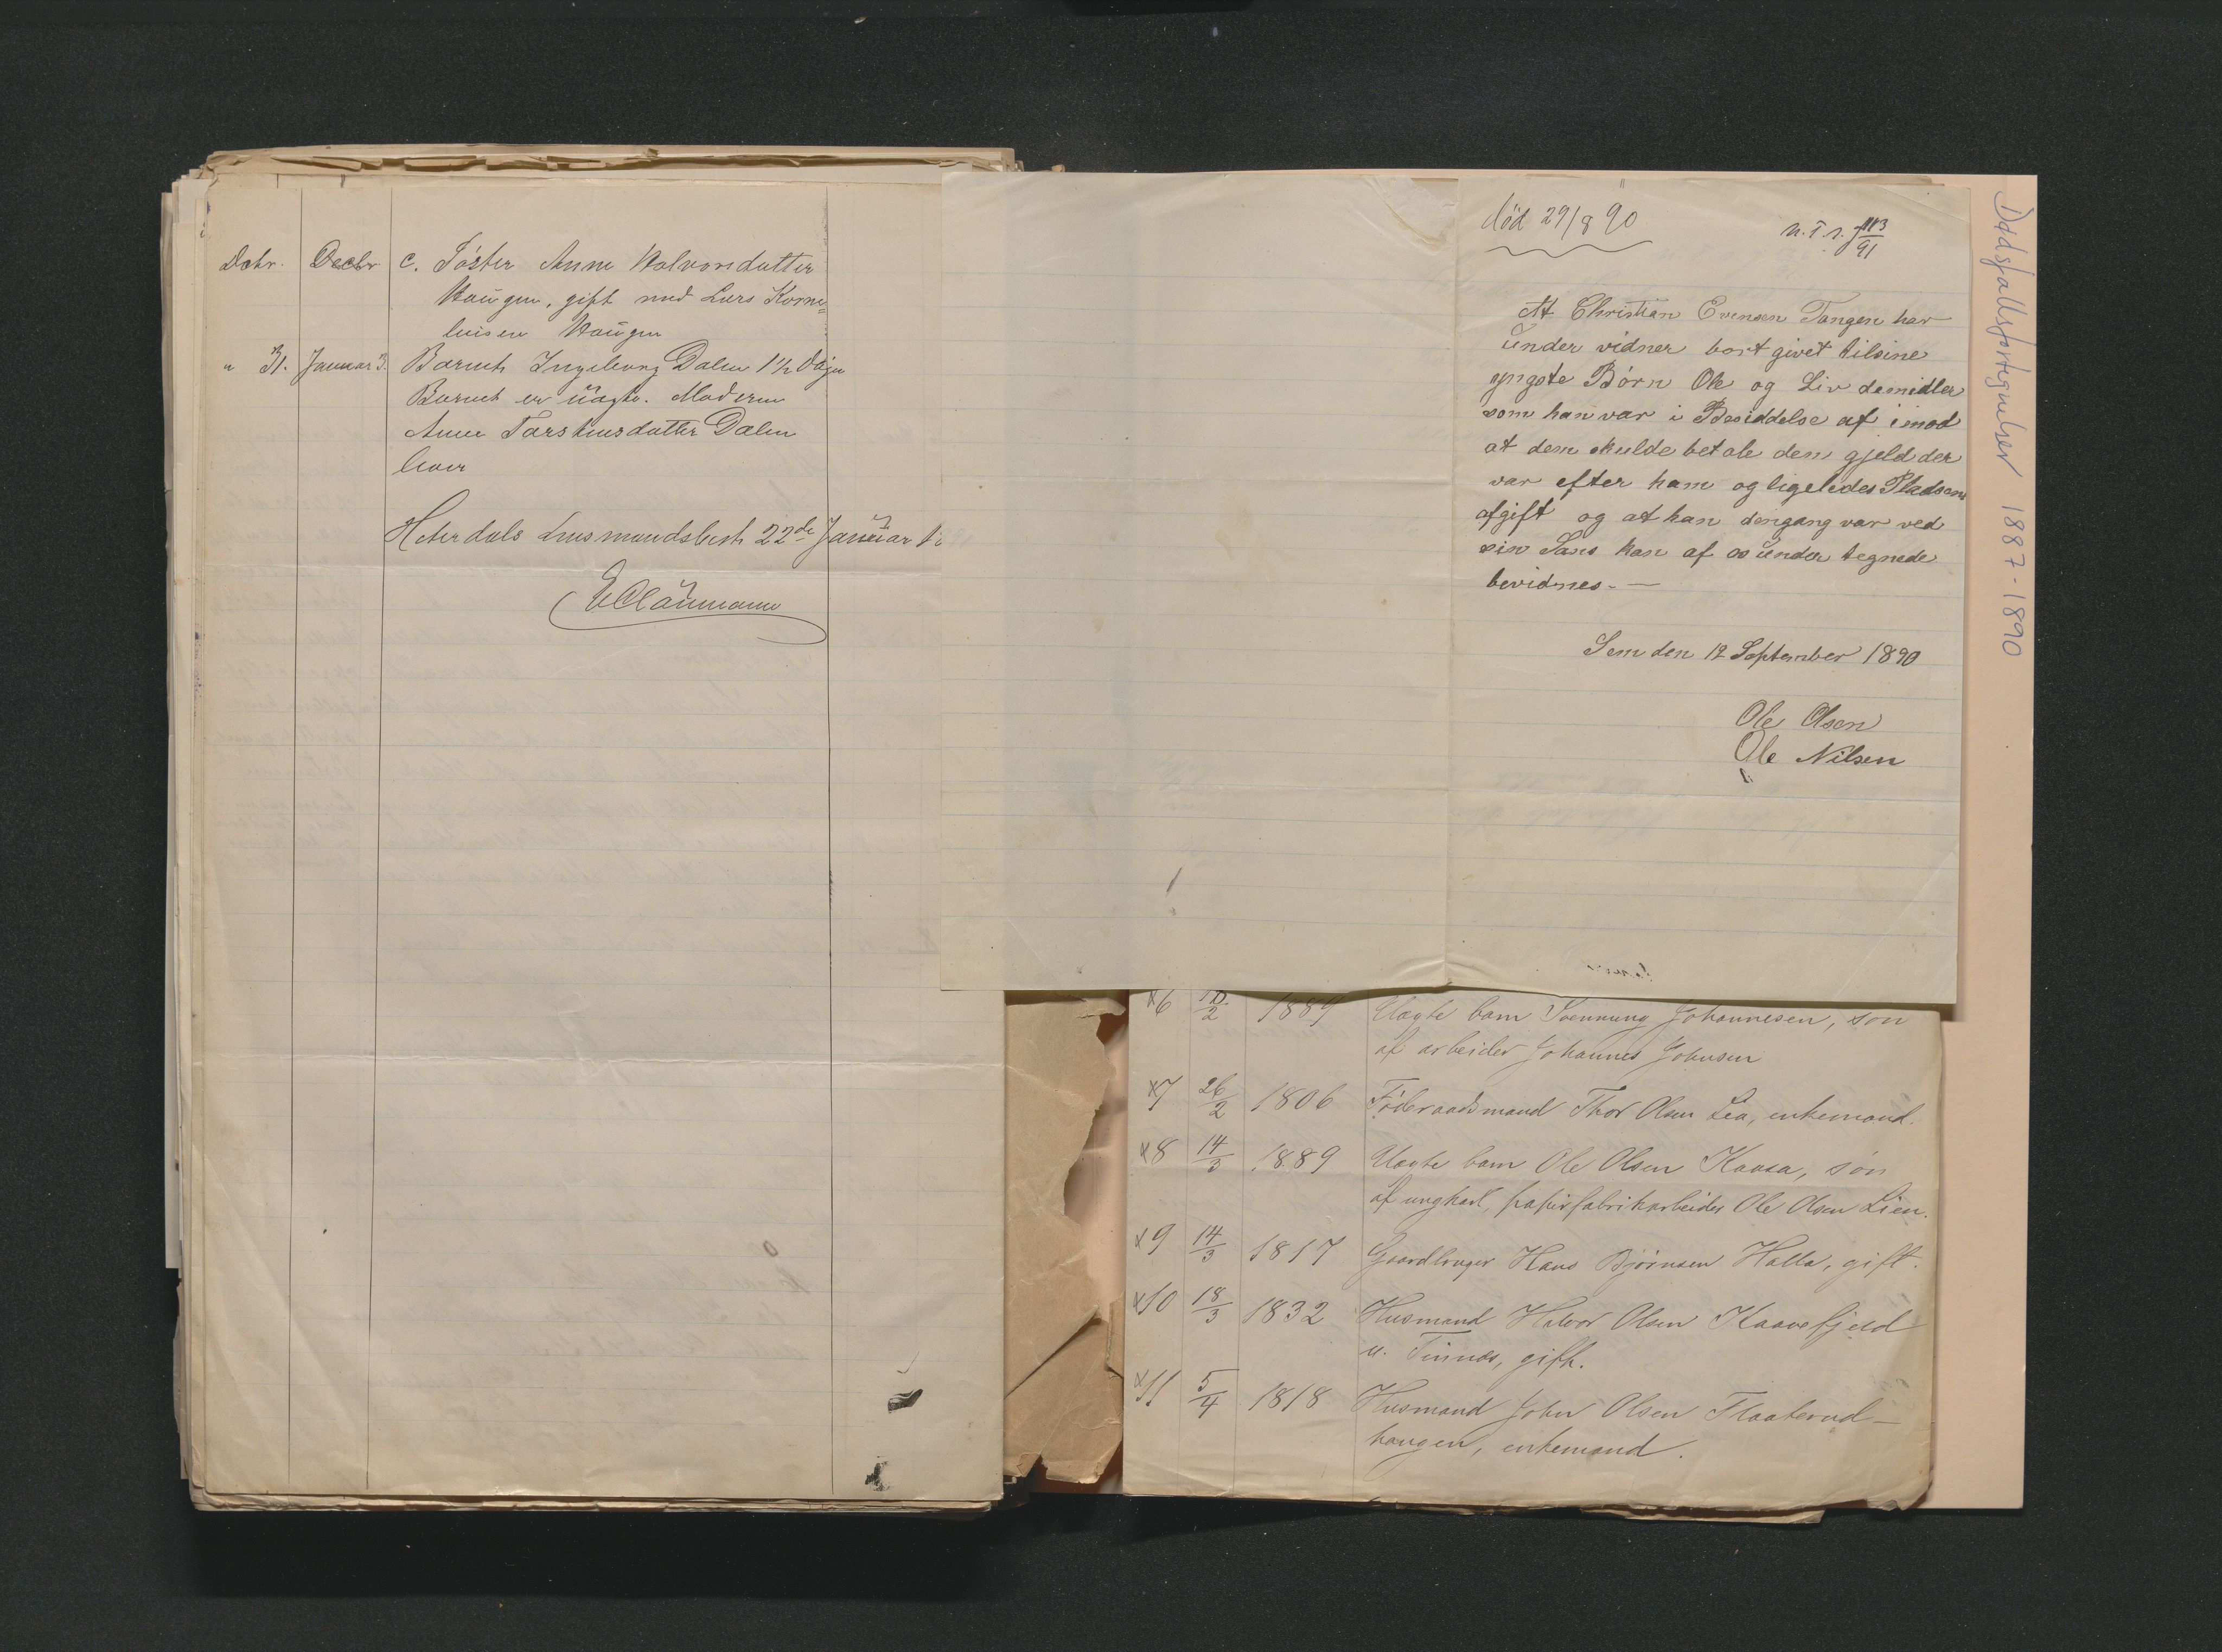 Dcbr. Decbr c. Søster Anne Halvorsdatter
Haugen, gift med Lars Korne=
liusen Haugen
" 31. Januar 3. Barnet Ingeborg Dalen 1½ Dage
Barnet er uægte. Moderen
Anne Torstensdatter Dalen
lever
Hiterdals Lensmandsbest. 22de Januar
død 29/8 90
At Christian Evensen Tangen har
under vidner bort givet tilsine
yngste Børn Ole og Liv demidler
som han var i Besiddelse af imod
at dem skulde betale den gjeld der
var efter ham og ligeledes Pladsens
afgift og at han dengang var ved
sin Sans kan af os under tegnede
bevidnes. —
Sem den 12 September 1890
Ole Olsen
Ole Nilsen
Dødsfallsfortegnelser 1887-1890
x6 10/2 1889 Uægte barn Svennung Johannesen, søn
af arbeider Johannes Johnsen
x7 26/2 1806 Føderaadsmand Thor Olsen Lea, enkemand.
x8 14/3 1889 Uægte barn Ole Olsen Kaasa, søn
af ungkarl, papirfabrikarbeider Ole Olsen Lien.
x9 14/3 1817 Gaardbruger Hans Bjørnsen Halla, gift.
x10 18/3 1832 Husmand Halvor Olsen Kaavefjeld
u. Tinnes, gift.
x11 5/4 1818 Husmand John Olsen Flaaterud-
haugen, enkemand.